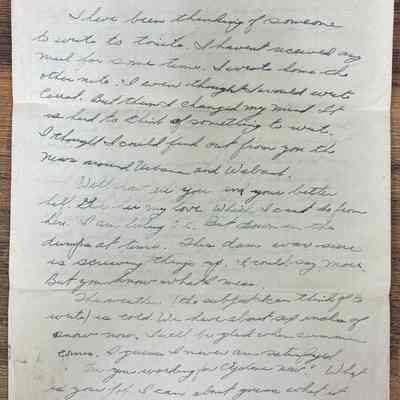 I have been thinking of someone
to write to tonite. I havent received any
mail for some time. I wrote home the
other nite. I even thought I would write
Carol. But then I changed my mind. It
is hard to think of something to write.
I thought I could find out from you the
news around Urbana and Wabash.
Well how are you and your better
half. Give her my love. When I cant do from
here. I am living O.K. But down in the
dumps at times. This dam war sure
is screwing things up. I could say more.
But you know what I mean.
The weather (the subject I can think of to
write) is cold. We have about six inches of
snow now. I will be glad when summer
comes. I guess I never am satisfied.
Are you working for now. What
is your I can about guess what it